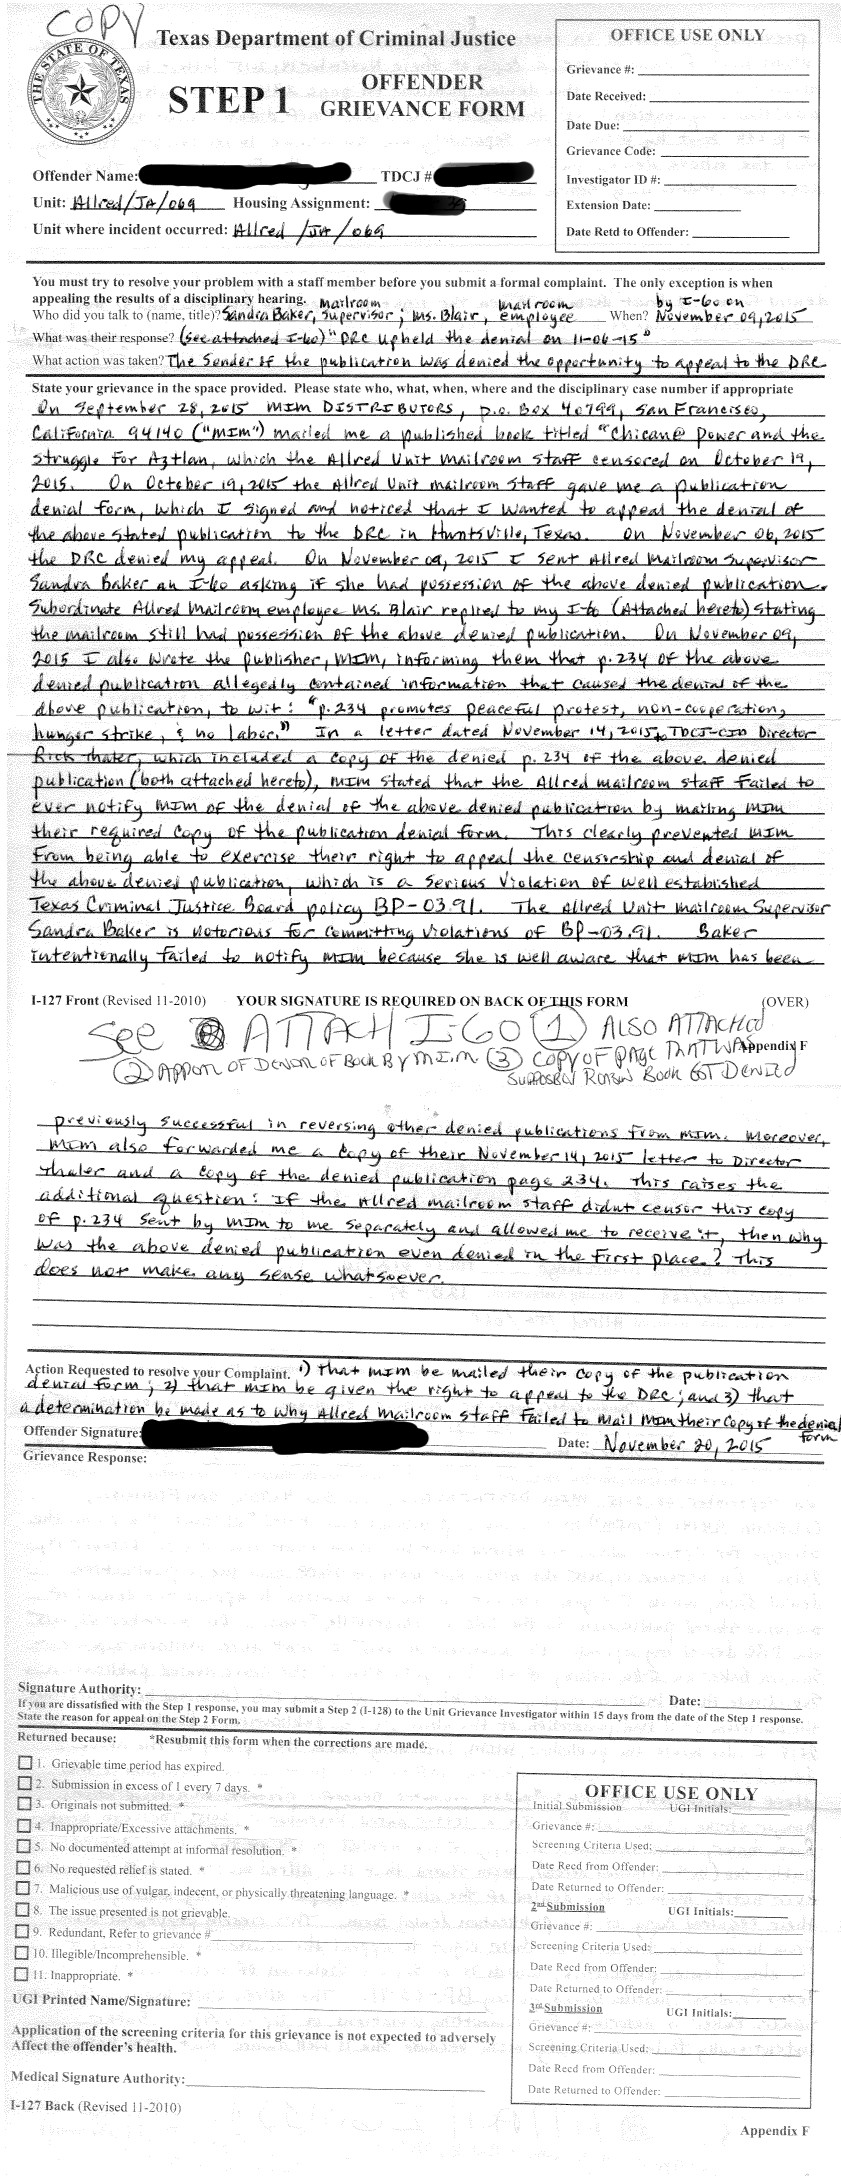 COPY
THE STATE OF TEXAS
Texas Department of Criminal Justice
STEP 1
OFFENDER
GRIEVANCE FORM
OFFICE USE ONLY
Grievance #:
Date Received:
Date Due:
Grievance Code:
Investigator ID #:
Extension Date:
Date Retd to Offender:
Offender Name: TDCJ #
Unit: Allred/JA/069 Housing Assignment:
Unit where incident occurred: Allred /JA/069
You must try to resolve your problem with a staff member before you submit a formal complaint. The only exception is when
appealing the results of a disciplinary hearing.
Who did you talk to (name, title)? Sandra Baker, Mailroom Supervisor; Ms. Blair, mailroom employee When? by I-60 on November 09, 2015
What was their response? (see attached I-60) "DRC upheld the denial on 11-06-15"
What action was taken? The Sender of the publication was denied the opportunity to appeal to the DRC
State your grievance in the space provided. Please state who, what, when, where and the disciplinary case number if appropriate
On September 28, 2015 MIM DISTRIBUTORS, P.O. Box 40799, San Francisco,
California 94140 ("MIM") mailed me a published book titled "Chican@ Power and the
Struggle for Aztlan, which the Allred Unit mailroom staff censored on October 19,
2015. On October 19, 2015 the Allred Unit mailroom staff gave me a publication
denial form, which I signed and noticed that I wanted to appeal the denial of
the above stated publication to the DRC in Huntsville, Texas. On November 06, 2015
the DRC denied my appeal. On November 09, 2015 I sent Allred Mailroom Supervisor
Sandra Baker an I-60 asking if she had possession of the above denied publication.
Subordinate Allred Mailroom employee Ms. Blair replied to my I-60 (Attached hereto) stating
the mailroom still had possession of the above denied publication. On November 09,
2015 I also wrote the publisher, MIM, informing them that p. 234 of the above
denied publication allegedly contained information that caused the denial of the
above publication, to wit: "p. 234 promotes peaceful protest, non-cooperation,
hunger strike, & no labor." In a letter dated November 14, 2015 to TDCJ-CID Director
Rick Thaler, which included a copy of the denied p. 234 of the above denied
publication (both attached hereto), MIM stated that the Allred mailroom staff failed to
ever notify MIM of the denial of the above denied publication by mailing MIM
their required copy of the publication denial form. This clearly prevented MIM
from being able to exercise their right to appeal the censorship and denial of
the above denied publication, which is a serious violation of well established
Texas Criminal Justice Board policy BP-03.91. The Allred Unit mailroom Supervisor
Sandra Baker is notorious for committing violations of BP-03.91. Baker
intentionally failed to notify MIM because she is well aware that MIM has been
I-127 Front (Revised 11-2010) YOUR SIGNATURE IS REQUIRED ON BACK OF THIS FORM (OVER)
See ATTACH I-60 (1) ALSO ATTACHED
Appendix F
(2) APPEAL OF DENIAL OF BOOK BY M.I.M (3) COPY OF PAGE THAT WAS
BOOK GOT DENIED
previously successful in reversing other denied publications from MIM. Moreover,
MIM also forwarded me a copy of their November 14, 2015 letter to Director
Thaler and a copy of the denied publication page 234. This raises the
additional question: If the Allred mailroom staff didnt censor this copy
of p. 234 sent by MIM to me separately and allowed me to receive it, then why
was the above denied publication even denied in the first place? This
does not make any sense whatsoever.
Action Requested to resolve your Complaint. 1) That MIM be mailed their copy of the publication
denial form; 2) that MIM be given the right to appeal to the DRC; and 3) that
a determination be made as to why Allred Mailroom staff failed to mail MIM their copy of the denial form
Offender Signature: Date: November 20, 2015
Grievance Response:
Signature Authority: Date:
If you are dissatisfied with the Step 1 response, you may submit a Step 2 (I-128) to the Unit Grievance Investigator within 15 days from the date of the Step 1 response.
State the reason for appeal on the Step 2 Form.
Returned because: *Resubmit this form when the corrections are made.
1. Grievable time period has expired.
2. Submission in excess of 1 every 7 days. *
3. Originals not submitted. *
4. Inappropriate/Excessive attachments. *
5. No documented attempt at informal resolution. *
6. No requested relief is stated. *
7. Malicious use of vulgar, indecent, or physically threatening language. *
8. The issue presented is not grievable.
9. Redundant, Refer to grievance #
10. Illegible/Incomprehensible. *
11. Inappropriate. *
UGI Printed Name/Signature:
Application of the screening criteria for this grievance is not expected to adversely
Affect the offender's health.
Medical Signature Authority:
OFFICE USE ONLY
Initial Submission UGI Initials:
Grievance #:
Screening Criteria Used:
Date Recd from Offender:
Date Returned to Offender:
2nd Submission UGI Initials:
Grievance #:
Screening Criteria Used:
Date Recd from Offender:
Date Returned to Offender:
3rd Submission UGI Initials:
Grievance #:
Screening Criteria Used:
Date Recd from Offender:
Date Returned to Offender:
I-127 Back (Revised 11-2010)
Appendix F